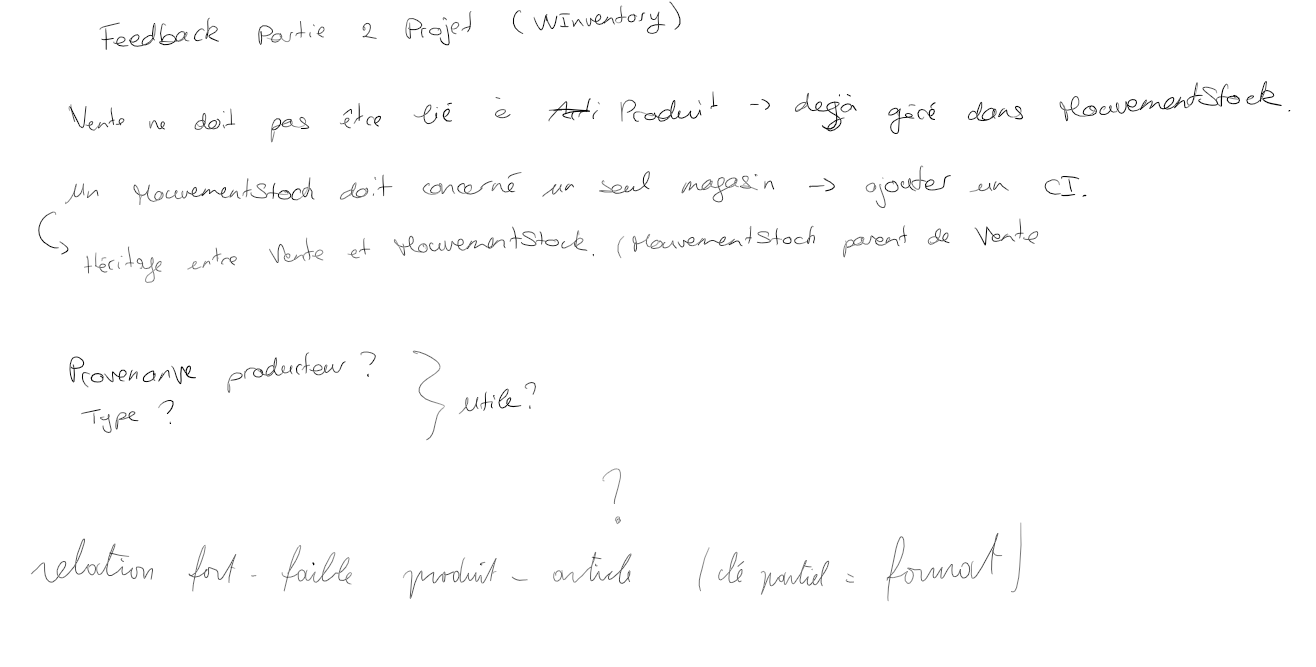 Feedback Partie 2 Projet (WInventory)
Vente ne doit pas être lié à Arti Produit -> degà géré dans MouvementStock.
Un MouvementStock doit concerné un seul magasin -> ajouter un CI.
Héritage entre Vente et MouvementStock. (MouvementStock parent de Vente
Provenanve producteur ?
Type ?
} utile?
?
relation fort - faible produit - article (clé partiel = format)